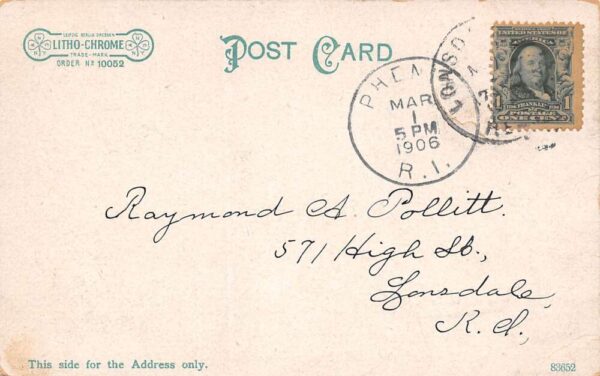 LEIPZIG BERLIN DRESDEN
LITHO-CHROME
TRADE-MARK
ORDER No 10052
POST CARD
PHEN
MAR
1
5 PM
1906
R. I.
LONSD
UNITED STATES OF
FRANKLIN
1 1
POSTAGE
ONE CENT
Raymond A. Pollitt.
571 High St.,
Lonsdale,
R.I.,
This side for the Address only.
83652